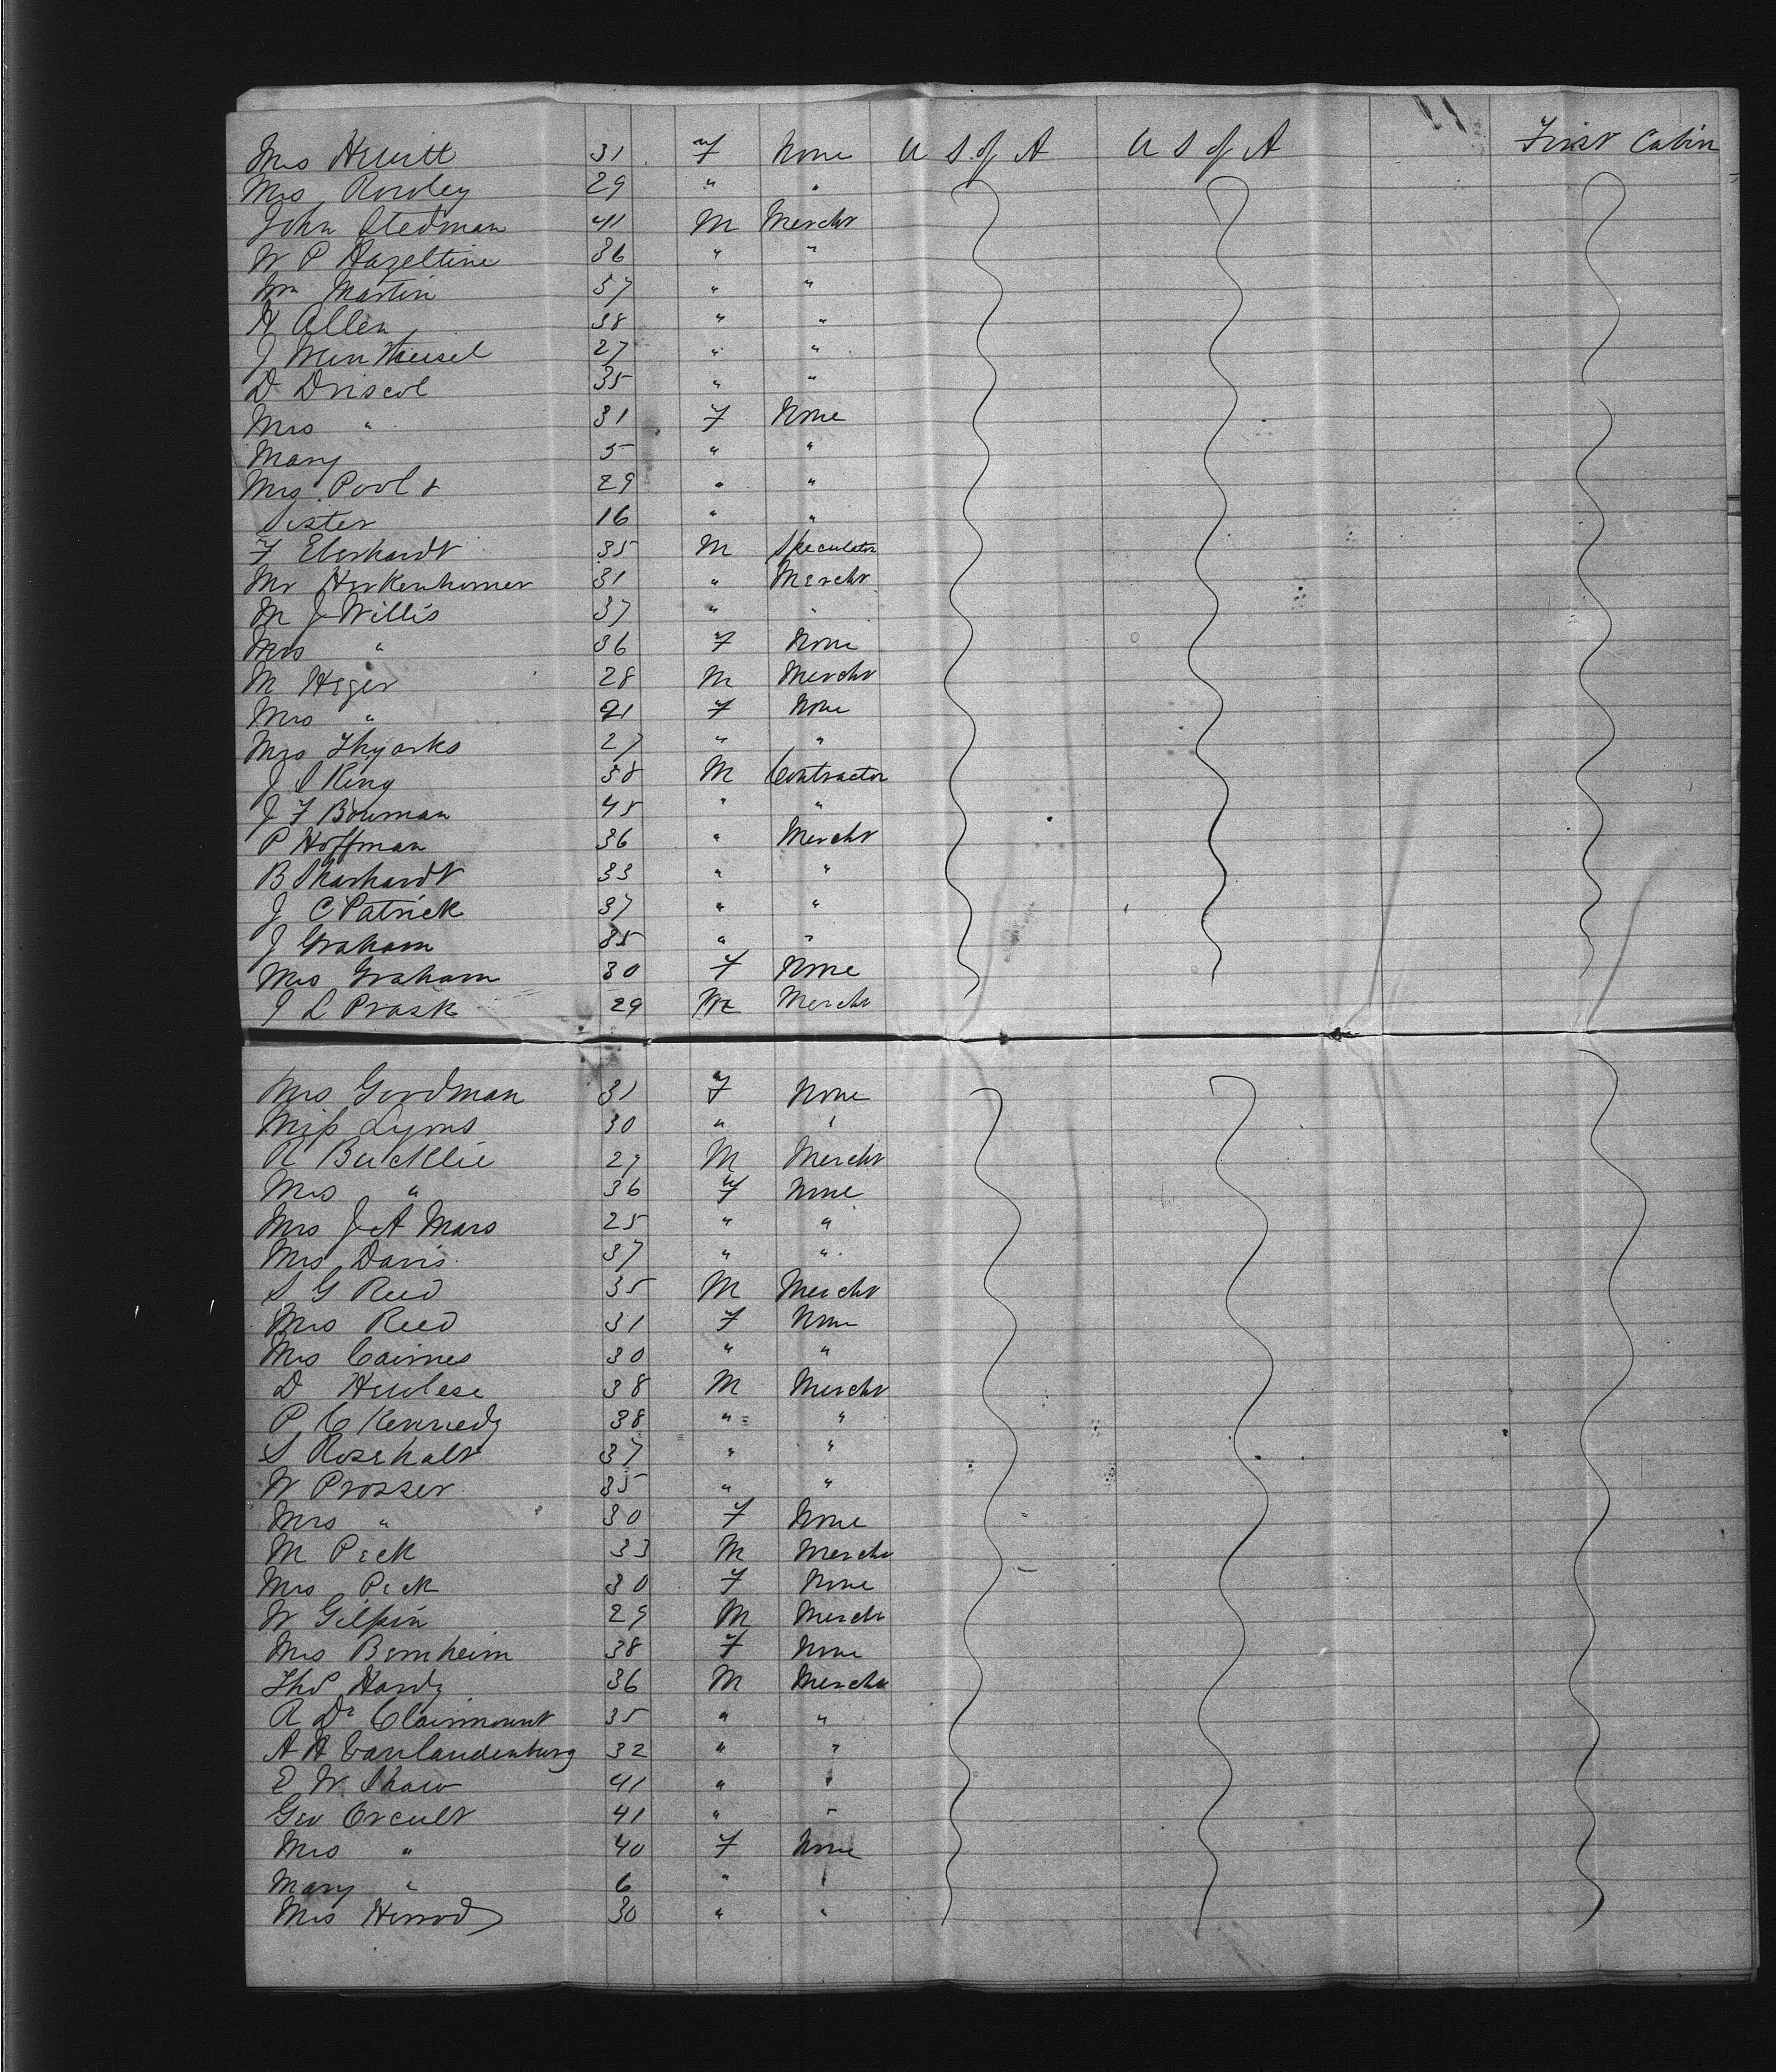 Mrs Hewitt 31 F None U S of A U S of A First Cabin
Mrs Rowley 29 " "
John Stedman 41 M Mercht
W P Hazeltine 36 " "
Wm Martin 37 " "
H Allen 38 " "
J 27 " "
D Driscol 35 " "
Mrs " 31 F None
Mary 5 " "
Mrs Pool & 29 " "
Sister 16 " "
F Eberhardt 35 M Speculator
Mr Herkenhomer 31 " Mercht
M J Willis 37 " "
Mrs " 36 F None
M Heger 28 M Mercht
Mrs " 21 F None
Mrs 27 " "
J S King 38 M Contractor
J F Bowman 45 " "
P Hoffman 36 " Mercht
B Sharhardt 33 " "
J C Patrick 37 " "
J Graham 35 " "
Mrs Graham 30 F None
J L Prask 29 M Mercht
Mrs Goodman 31 F None
Miss Lyons 30 " "
R Bucklie 27 M Mercht
Mrs " 36 F None
Mrs J A Mars 25 " "
Mrs Davis 37 " "
S G Reed 35 M Mercht
Mrs Reed 31 F None
Mrs Cairnes 30 " "
D Hewlese 38 M Mercht
P C Kennedy 38 " "
S Rosehalt 37 " "
W Prosser 35 " "
Mrs " 30 F None
M Peck 33 M Mercht
Mrs Peck 30 F None
W Gilpin 29 M Mercht
Mrs Bernheim 38 F None
Thos Hardy 36 M Mercht
A De Clairmount 35 " "
A H Vanlandenburg 32 " "
E W Shaw 41 " "
Geo Orcult 41 " "
Mrs " 40 F None
Mary " 6 " "
Mrs Herrod 30 " "